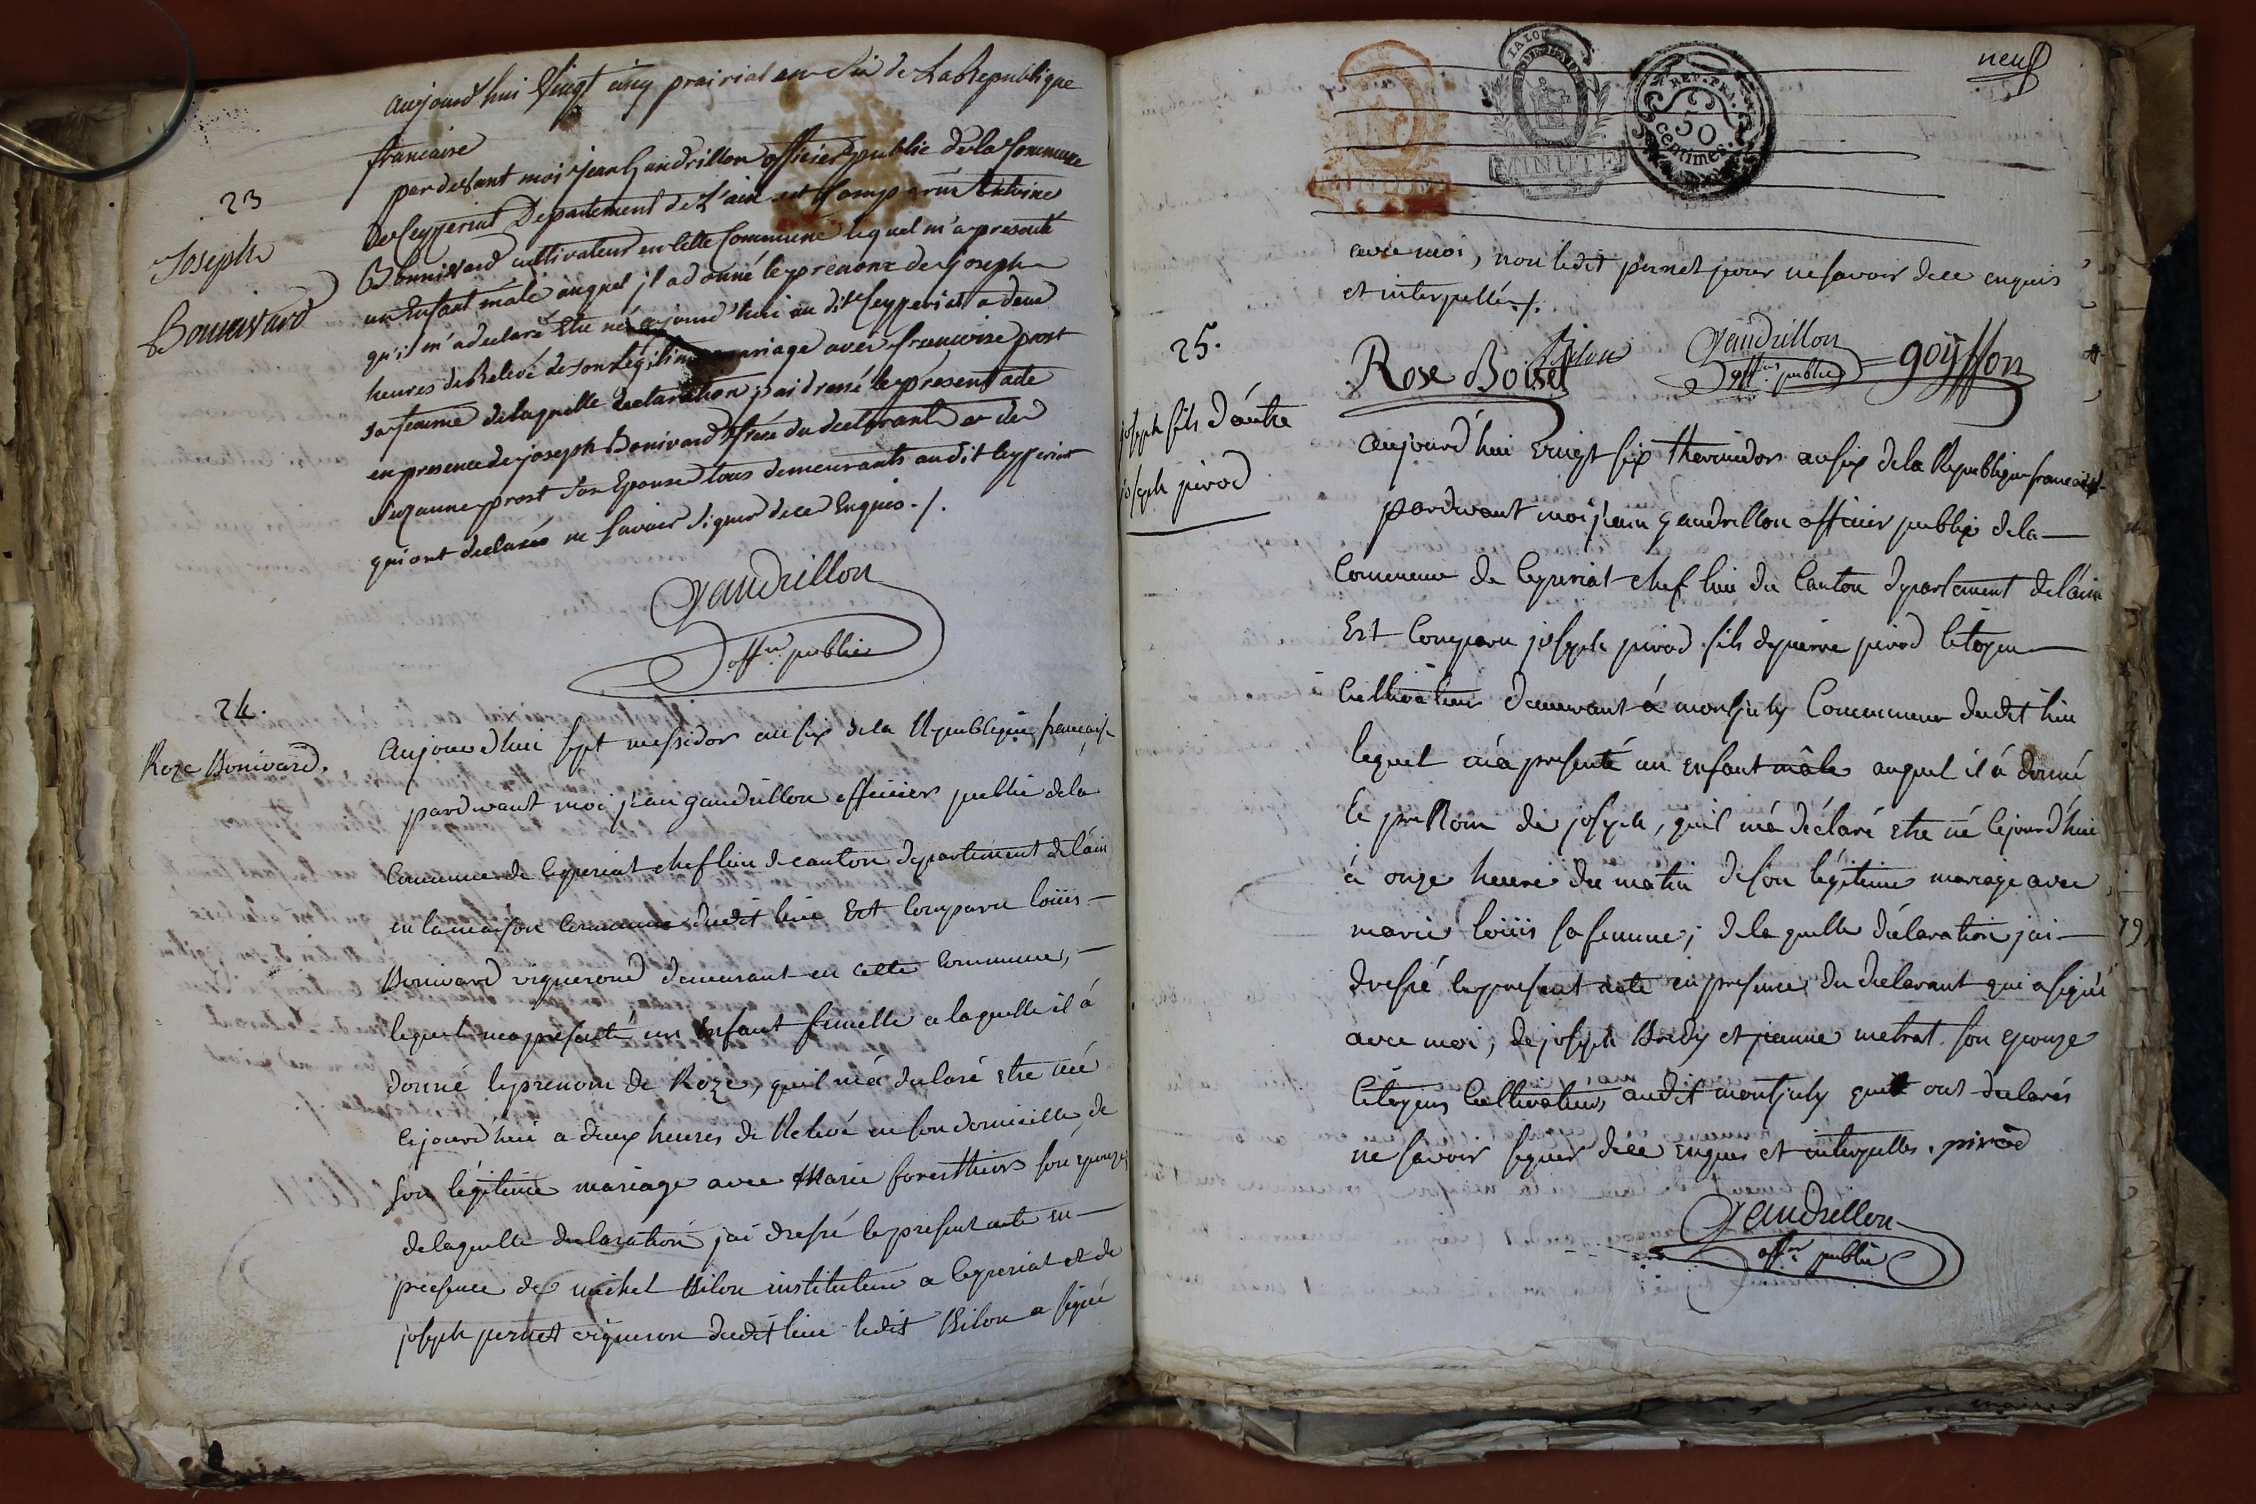 aujourd'hui Vingt cinq prairial an Six de La Republique
francaise
pardevant moi jean Gandrillon officier public de la Commune
de Ceyzeriat Departement de L'ain est Comparu Antoine
23
Joseph
Bonnivard
Bonnivard cultivateur en Cette Commune lequel m'a presenté
un Enfant mâle auquel jl a donné le prenom de joseph
qu'il m'a declaré Etre né ajourd'hui au dit Ceyzeriat a deux
heures de Relevé de son Legitime mariage avec francoise prost
sa femme delaquelle declaration j'ai dressé le present acte
en presence de joseph Bonivard frere du declarant et de
Suzanne prost Son Epouse tous demeurants au dit Ceyzeriat
qui ont declarés ne Savoir Signer de ce Enquis ./.
Gandrillon
offer public
24.
Roze Bonivard.
Aujourdhui Sept messidor an six de la Republique francaise
pardevant moi jean gandrillon officier public dela
Commune de Ceyzeriat chef lieu de canton departement de l'ain
en la maison Commune dudit lieu Est Comparu loüis —
Bonivard vigneron demeurant en cette Commune, —
lequel ma presenté un Enfant femelle a laquelle il á
donné le prenom de Roze, quil má declaré etre née
cejourd'hui a deux heures de Relevé en son domicille, de
son légitime mariage avec Marie foresthier son epouze
delaquelle declaration jai dressé le present acte en —
presence de michel Bilon instituteur a Ceyzeriat et de
joseph pernet vigneron dudit lieu ledit Bilon a signé
neuf
TALON
MINUTE
REP. FRA.
50
centimes.
avec moi, non ledit pernet pour ne savoir de ce enquis
et interpellé ./.
Rose Boisel Bilon Gandrillon offier public goÿffon
25.
joseph fils dáutre
joseph pirod
aujourd'hui Vingt six thermidor an six de la Republique francaise
pardevant moi jean gandrillon officier public de la —
Commune de Ceyzeriat chef lieu du Canton departement de l'ain
Est Comparu joseph pirod fils de pierre pirod Citoyen —
Cultivateur demeurant á montjuly Commune dudit lieu
lequel má presenté un enfant mâle auquel il á donné
le preNom de joseph, quil má déclaré etre né cejourd'hui
á onze heure du matin de son légitime mariage avec
marie loüis sa femme; de laquelle déclaration jai —
dressé le present acte en presence du declarant qui a signé
avec moi, de joseph Bredy et jeanne metrat son epouze
Citoyens Cultivateurs audit montjuly qui ont declarés
ne savoir signer déce enquis et interpellés. pirod
Gandrillon
offer public